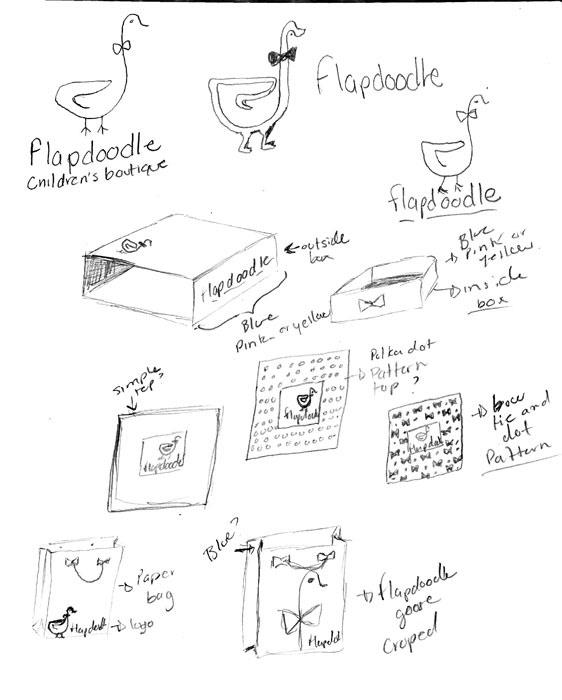 flapdoodle
children's boutique
flapdoodle
flapdoodle
outside
box
flapdoodle
Blue
Pink or yellow
Blue
Pink or
yellow
inside
box
Simple
top?
Polka dot
Pattern
top?
flapdoodle
bow
tie and
dot
Pattern
Blue?
Paper
bag
logo
flapdoodle
goose
croped